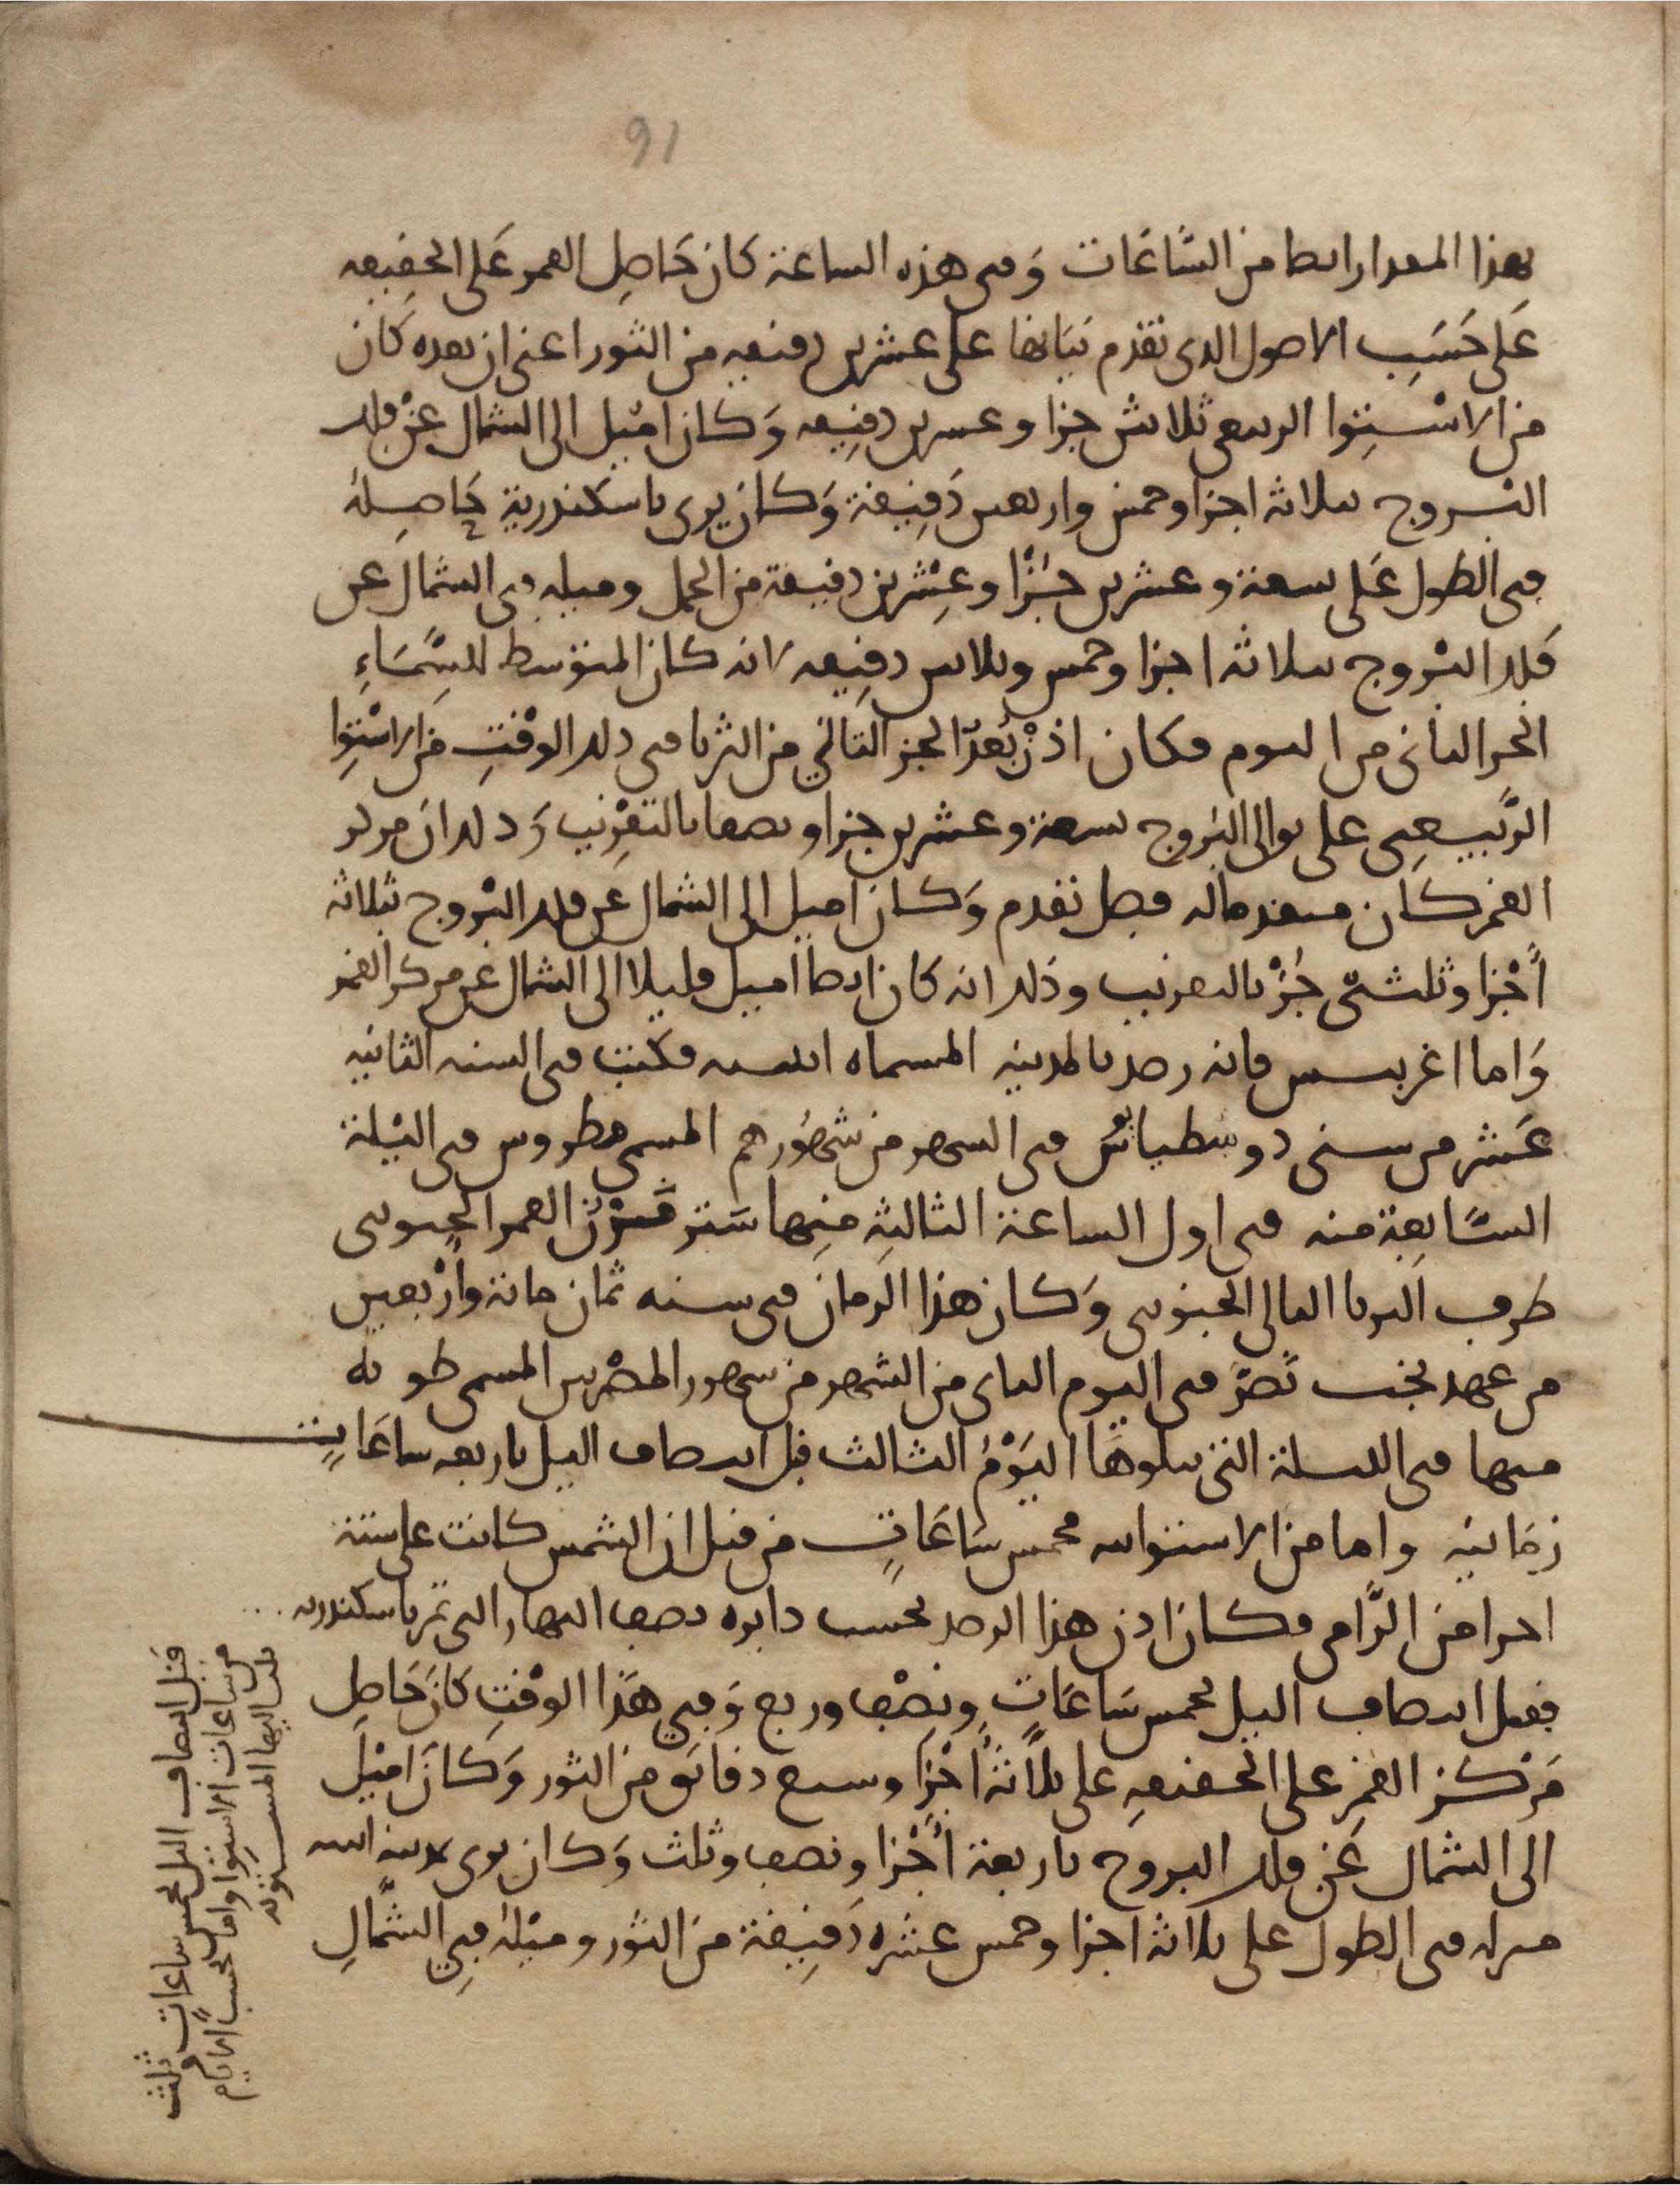 91
بهذا المقدار ايضا من السَّاعَات وَفى هذه الساعة كان حَاصِل القمر عَلى الحقيقه
عَلى حَسَبِ الاصول الذى تقدم بَيَانها على عشرين دقيقه من الثور اعنى ان بعده كان
من الاسْتِوا الربيعى ثلاثين جزا وعشرين دقيقه وَكان امْيل الى الشمال عَنْ فلك
البُروج بثلاثة اجزا وخمس واربعين دَقِيقة وَكان يرى باسكندرية حَاصِلهُ
فى الطول عَلى تسعة وعشرين جُزْا وعِشْرين دقيقة من الحمل وميله فى الشمال عن
فَلك البُروج بثلاثة اجزا وخمس وثلاثين دقيقه لانه كان المتوسط للسَّمَاءِ
الجزا الثانى من التوم فكان اذنْ بُعْدُ الجز التَالي من الثريا فى ذلك الوقْتِ من الاسْتِوا
الرَّبيعِى على توالى البُروج تسعة وعشرين جزا ونصفا بالتقرِيب وَذلك ان مركز
القمر كان متقدما له فصل تقدم وَكان اميل الى الشمال عن فلك البُروج بثلاثة
أجْزا وثلثىْ جُزْ بالتقريب وذلك انه كان ايضا اميل قليلا الى الشمال عن مركز القمر
وَاما اغربيس فانه رصد بالمدينه المسماه فكتب فى السنه الثانيه
عَشر من سنى دومطيانُس فى الشهر من شهُورهم المسمى مطروس فى الليْلة
السَّابِعِة منه فى اول الساعة الثالثِة مِنها سَتر قَرْنُ القمر الجنوبى
طرف الثريا التالى الجنوبى وَكان هذا الزمان فى سنه ثمان مائة وأرْبعين
من عهد بخت نَصَّر فى اليوم الثانى من الشهر من شهور المصْريين المسمى طوبه
منها فى الليلة التى يتلوهَا اليَوْمُ الثالث قبل انتصاف الليل باربعه ساعَاتٍ
زمَانيَه واما من الاستوائيه فخمس سَاعَاتٍ من قبل ان الشمس كانت على ستة
اجزا من الرَّامى فكان اذن هذا الرصد بحسب دايره نصف النهار التى تمر باسكندريه
قبل انتصاف الليل بخمس سَاعَاتٍ ونِصْف وربع وَفِي هَذا الوقتِ كانَ حَاصِل
مَرْكز القمرِ على الحقيقهِ على ثلاثَةُ أجْزا وسبع دقائق من الثور وَكانَ امْيَل
الى الشمال عَن فلك البروج باربعة أجْزا ونصف وثلث وَكان يرى
ميله فى الطول على ثلاثة اجزا وخمس عشره دَقِيقة من الثور ومَيْلهُ فِي الشَّمالِ
قبل انتصاف الليل بخمس ساعات وثلث
من ساعات الاستِوا واما بحسب الايام
بلياليها المستويه